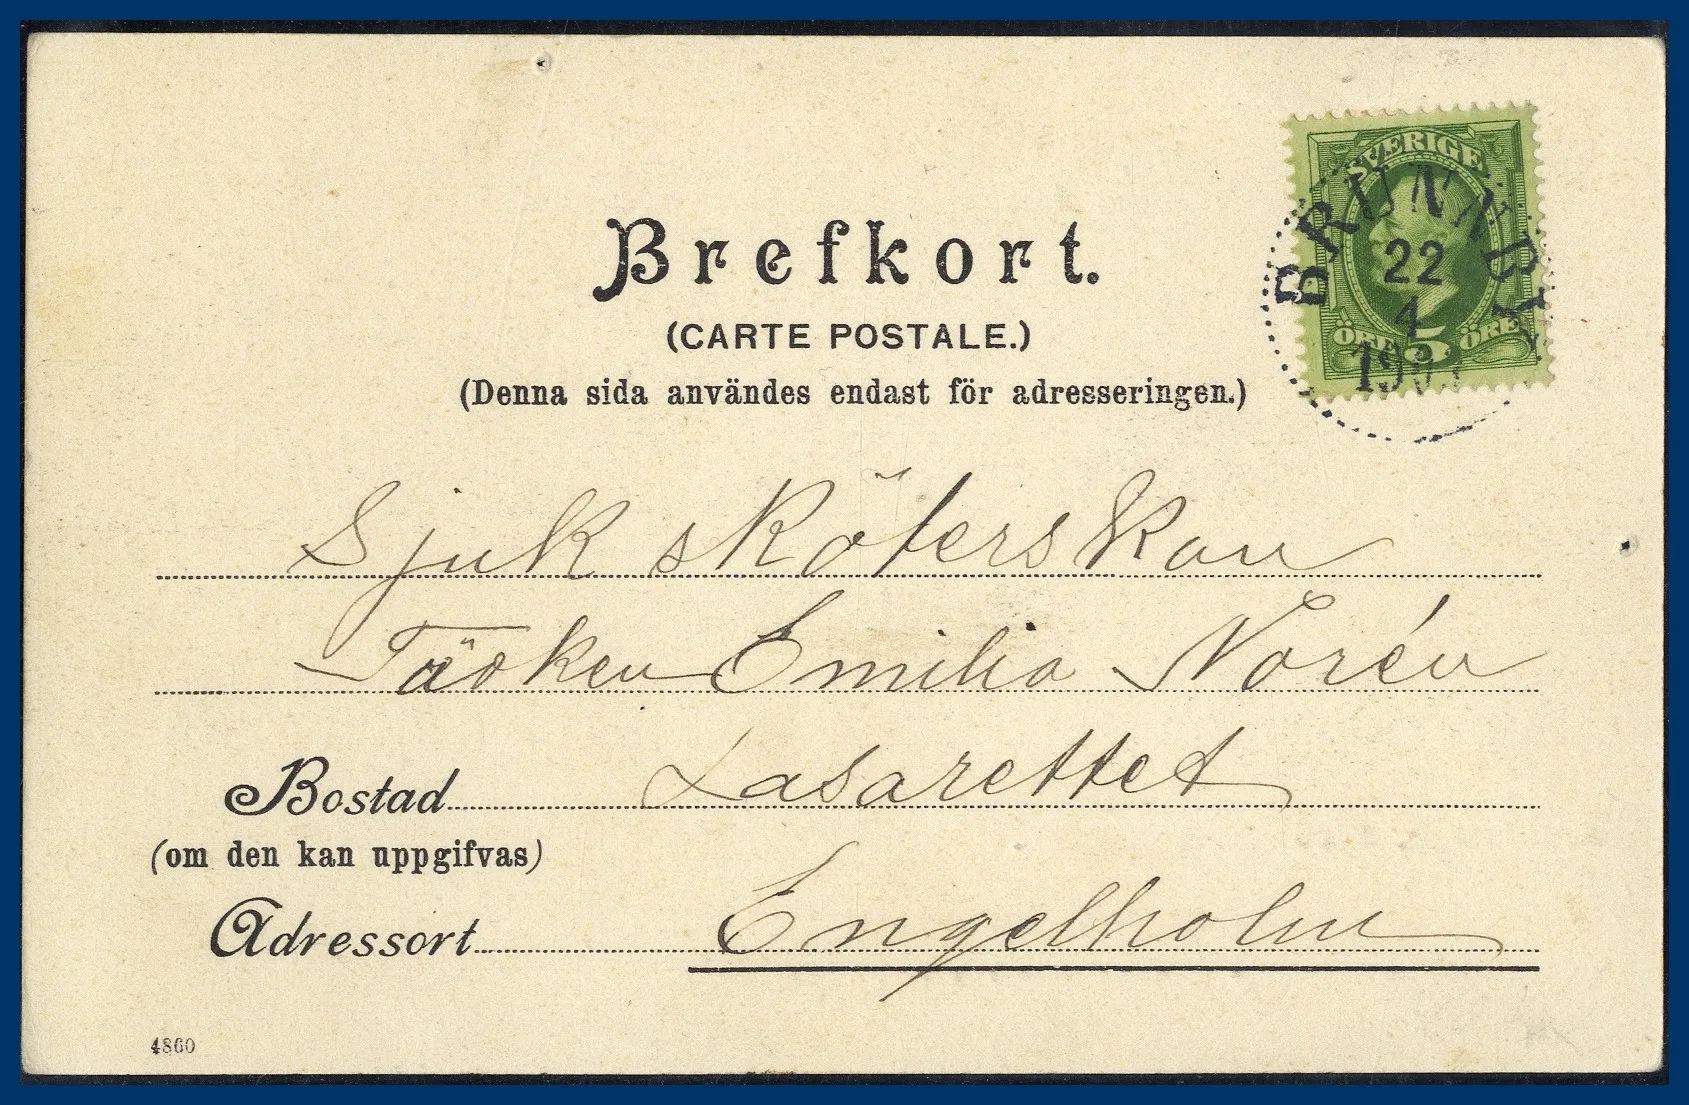 SVERIGE
BRUNNBY
22
4
ÖRE 5 ÖRE
Brefkort.
(CARTE POSTALE.)
(Denna sida användes endast för adresseringen.)
Sjuksköterskan
Emilia Norén
Bostad Lasarettet
(om den kan uppgifvas)
Adressort Engelholm
4860